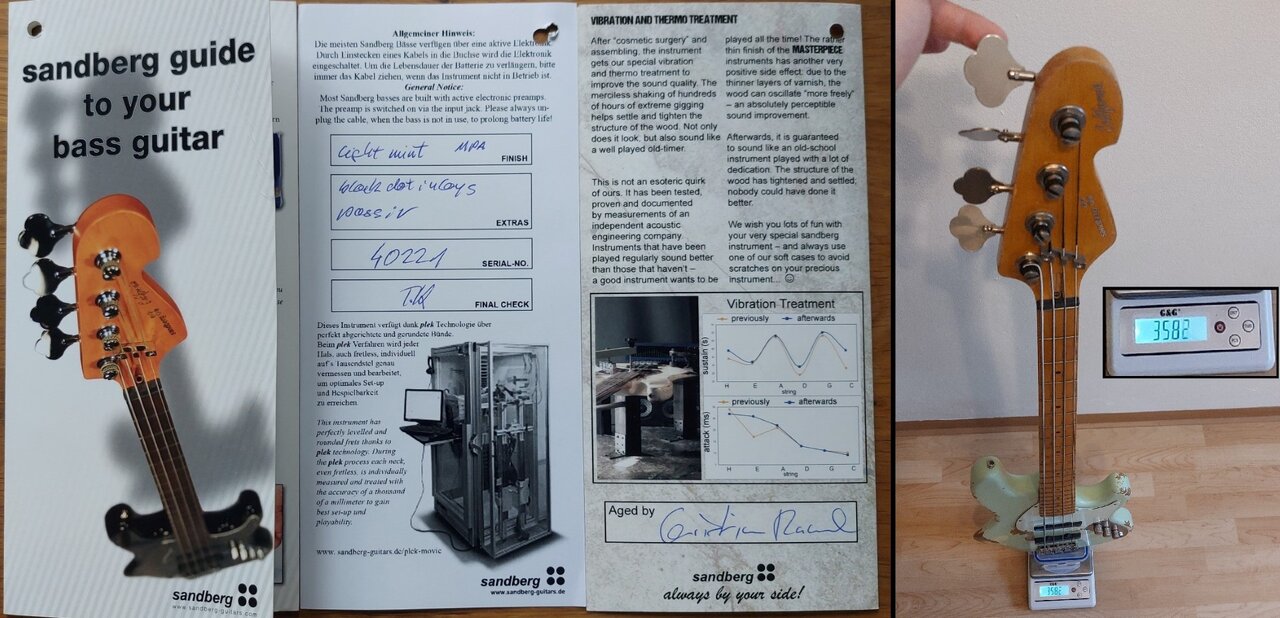 sandberg guide
to your
bass guitar
sandberg
www.sandberg-guitars.com
Allgemeiner Hinweis:
Die meisten Sandberg Bässe verfügen über eine aktive Elektronik.
Durch Einstecken eines Kabels in die Buchse wird die Elektronik
eingeschaltet. Um die Lebensdauer der Batterie zu verlängern, bitte
immer das Kabel ziehen, wenn das Instrument nicht in Betrieb ist.
General Notice:
Most Sandberg basses are built with active electronic preamps.
The preamp is switched on via the input jack. Please always un-
plug the cable, when the bass is not in use, to prolong battery life!
light mint MPA
FINISH
black dot inlays
passiv
EXTRAS
40221
SERIAL-NO.
T.K
FINAL CHECK
Dieses Instrument verfügt dank plek Technologie über
perfekt abgerichtete und gerundete Bünde.
Beim plek Verfahren wird jeder
Hals, auch fretless, individuell
auf's Tausendstel genau
vermessen und bearbeitet,
um optimales Set-up
und Bespielbarkeit
zu erreichen.
This instrument has
perfectly levelled and
rounded frets thanks to
plek technology. During
the plek process each neck,
even fretless, is individually
measured and treated with
the accuracy of a thousand
of a millimeter to gain
best set-up und
playability.
www. sandberg-guitars.de/plek-movie
sandberg
www.sandberg-guitars.de
VIBRATION AND THERMO TREATMENT
After "cosmetic surgery" and
assembling, the instrument
gets our special vibration
and thermo treatment to
improve the sound quality. The
merciless shaking of hundreds
of hours of extreme gigging
helps settle and tighten the
structure of the wood. Not only
does it look, but also sound like
a well played old-timer.
This is not an esoteric quirk
of ours. It has been tested,
proven and documented
by measurements of an
independent acoustic
engineering company.
Instruments that have been
played regularly sound better
than those that haven't –
a good instrument wants to be
played all the time! The rather
thin finish of the MASTERPIECE
instruments has another very
positive side effect: due to the
thinner layers of varnish, the
wood can oscillate "more freely"
– an absolutely perceptible
sound improvement.
Afterwards, it is guaranteed
to sound like an old-school
instrument played with a lot of
dedication. The structure of the
wood has tightened and settled,
nobody could have done it
better.
We wish you lots of fun with
your very special sandberg
instrument – and always use
one of our soft cases to avoid
scratches on your precious
instrument... ☺
Vibration Treatment
previously afterwards
sustain (s)
H E A D G C
string
previously afterwards
attack (ms)
H E A D G C
string
Aged by
sandberg
always by your side!
G&G
3582
3582